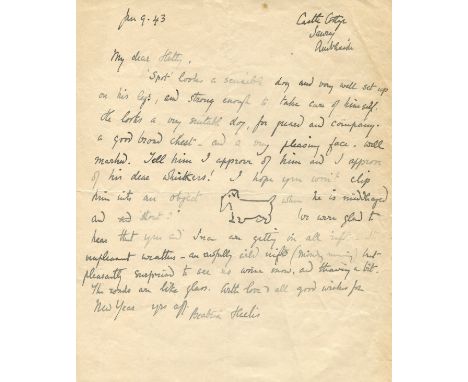 Jan 9. 43
Castle Cottge
Sawrey
Ambleside
My dear Hetty,
'Spot' looks a sensible dog and very well set up
on his legs, and strong enough to take care of himself.
He looks a very suitable dog, for guard and company.
a good broad chest - and a very pleasing face - well
marked. Tell him I approve of him and I approve
of his dear Whiskers! I hope you won't clip
him into an object when he is middleaged
and stout! We were glad to
hear that you and are getting on all right
unpleasant weather - an awfully cold night (morning) but
pleasantly surprised to see no worse snow, and thawing a bit.
The roads are like glass. With love & all good wishes for
New Year yrs aff Beatrix Heelis